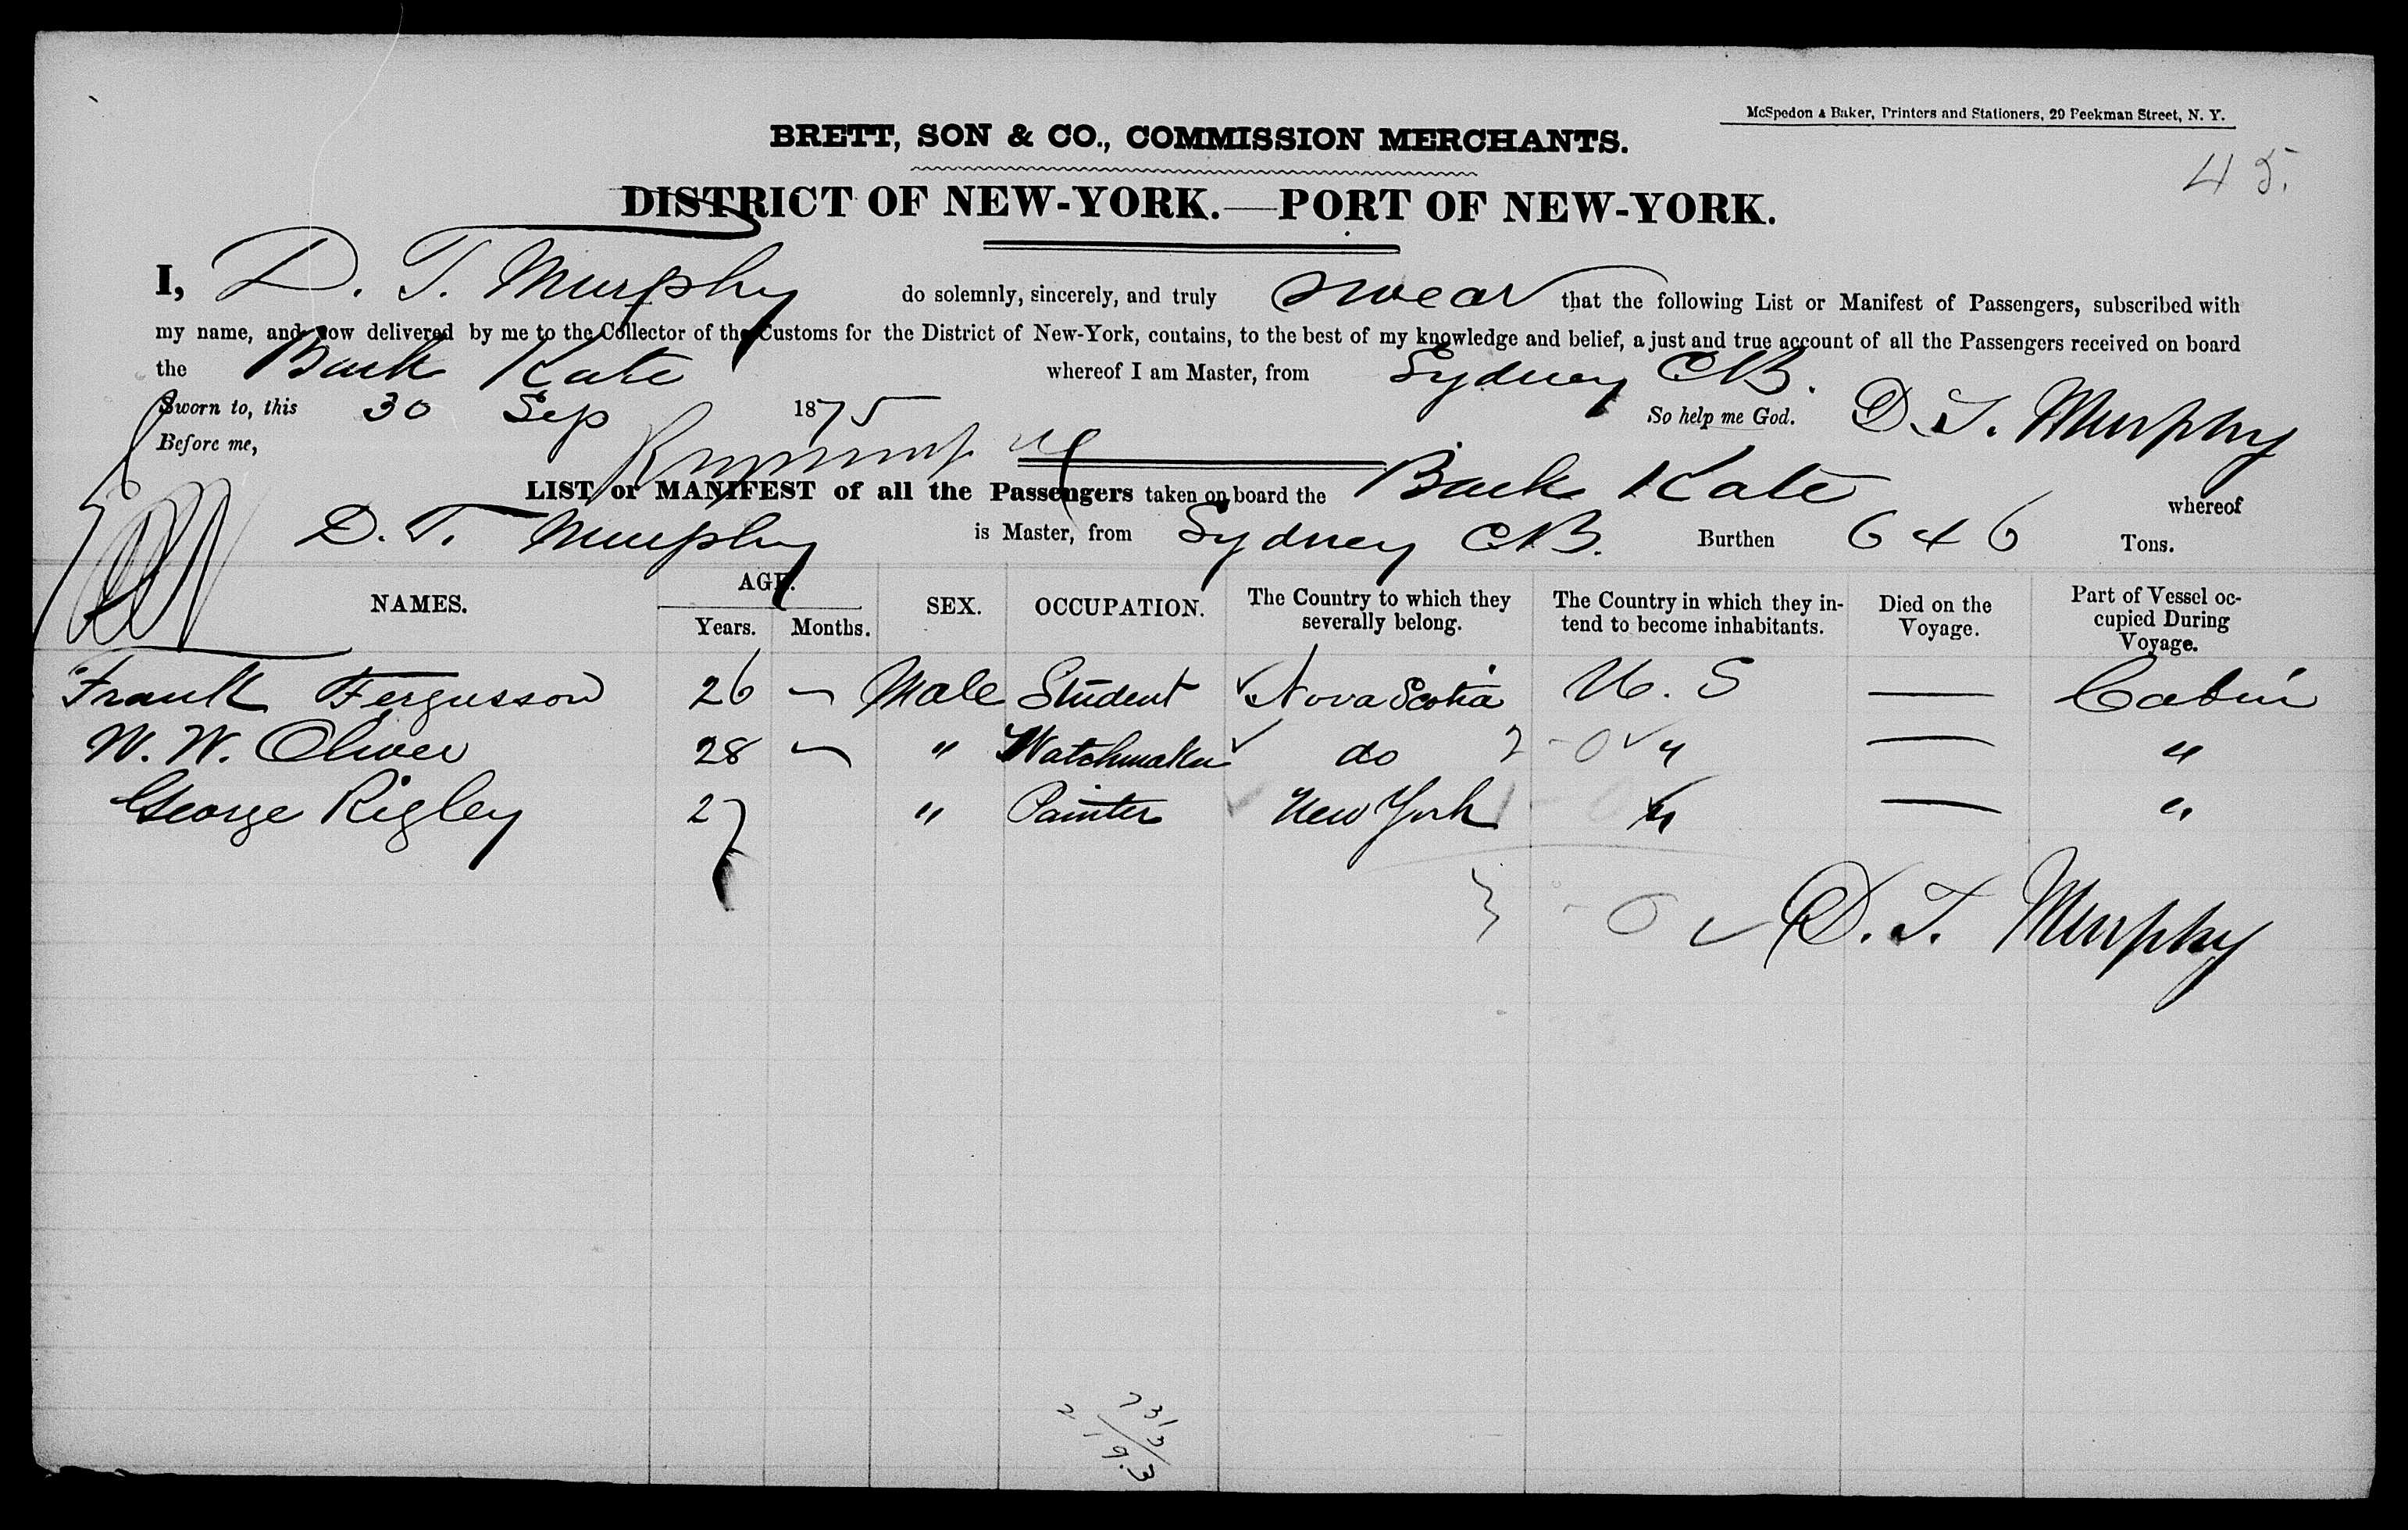 McSpedon & Baker, Printers and Stationers, 29 Beekman Street, N. Y.
BRETT, SON & CO., COMMISSION MERCHANTS.
45.
DISTRICT OF NEW-YORK.—PORT OF NEW-YORK.
I, D. T. Murphy do solemnly, sincerely, and truly swear that the following List or Manifest of Passengers, subscribed with
my name, and now delivered by me to the Collector of the Customs for the District of New-York, contains, to the best of my knowledge and belief, a just and true account of all the Passengers received on board
the Bark Kate whereof I am Master, from Sydney C.B.
Sworn to, this 30 Sep 1875 So help me God. D. T. Murphy
Before me,
LIST or MANIFEST of all the Passengers taken on board the Bark Kate whereof
D. T. Murphy is Master, from Sydney C.B. Burthen 646 Tons.
NAMES. AGE. Years. Months. SEX. OCCUPATION. The Country to which they severally belong. The Country in which they intend to become inhabitants. Died on the Voyage. Part of Vessel occupied During Voyage.
Frank Fergusson 26 — Male Student ✓ Nova Scotia U. S — Cabin
W. W. Oliver 28 — " Watchmaker ✓ do 2 - 0 ✓ " — "
George Rigley 27 " Painter ✓ New York 1 - 0 ✓ " — "
3 - 0 ✓ D. T. Murphy